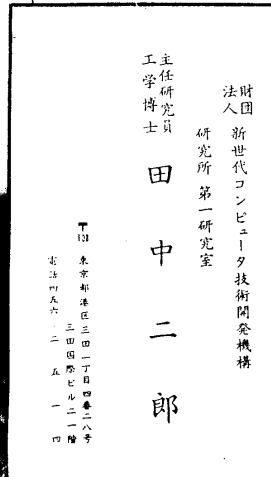 財団
法人
新世代コンピュータ技術開発機構
研究所 第一研究室
主任研究員
工学博士
田中二郎
〒108
東京都港区三田一丁目四番二八号
三田国際ビル二一階
電話四五六‐二五一四